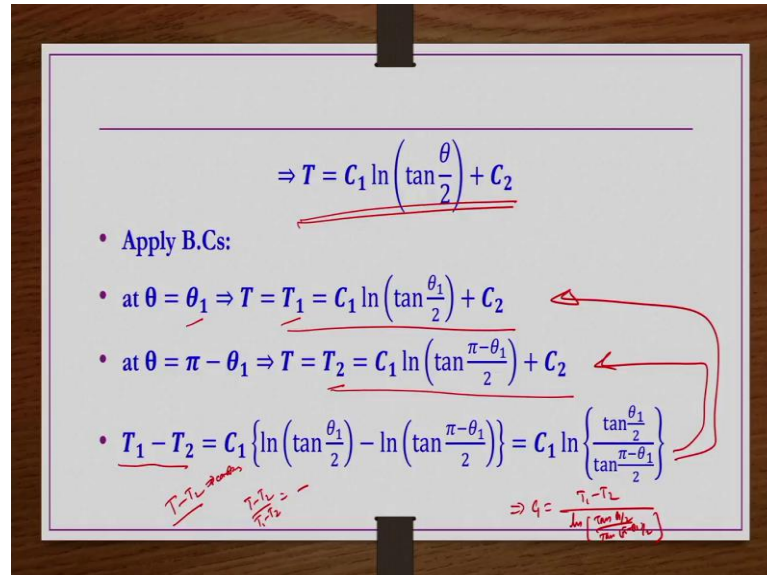 ⇒ T = C₁ ln(tan θ/2) + C₂
• Apply B.Cs:
• at θ = θ₁ ⇒ T = T₁ = C₁ ln(tan θ₁/2) + C₂
• at θ = π − θ₁ ⇒ T = T₂ = C₁ ln(tan (π−θ₁)/2) + C₂
• T₁ − T₂ = C₁ {ln(tan θ₁/2) − ln(tan (π−θ₁)/2)} = C₁ ln{(tan θ₁/2)/(tan (π−θ₁)/2)}
T−T₂ ⇒
(T−T₂)/(T₁−T₂) = −
⇒ C₁ = (T₁−T₂)/ln[(tan θ₁/2)/(tan (π−θ₁)/2)]